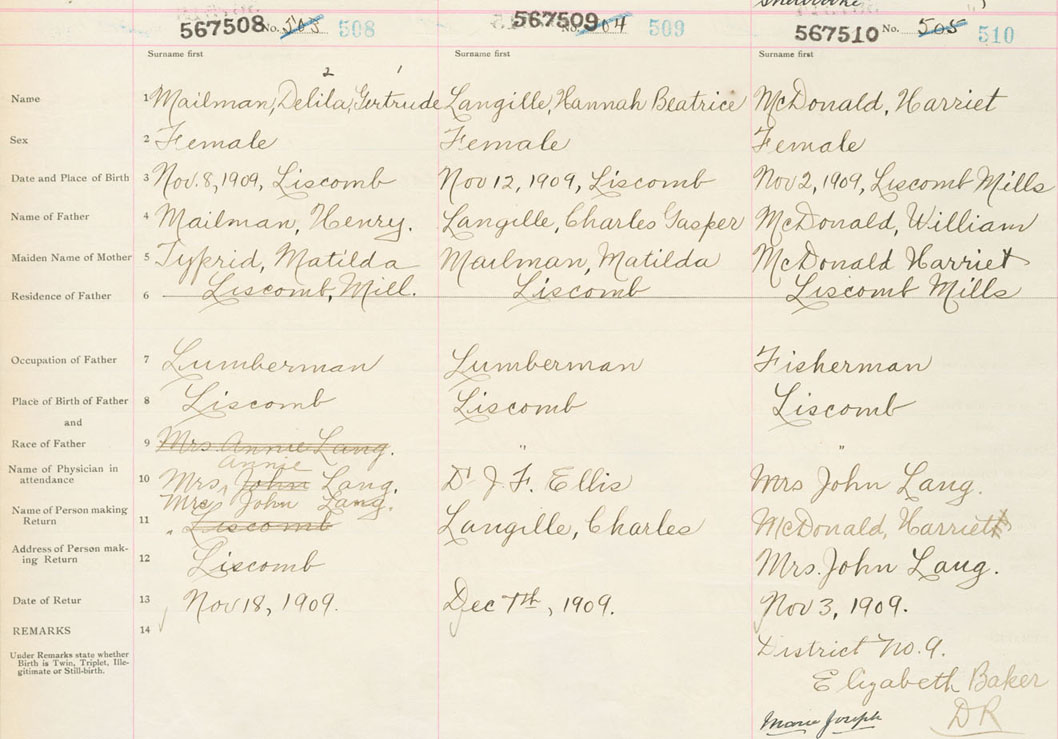 567508 No. 505 508 567509 No. 504 509 567510 No. 505 510
Surname first Surname first Surname first
2 1
Name 1 Mailman, Delila, Gertrude Langille, Hannah Beatrice McDonald, Harriet
Sex 2 Female Female Female
Date and Place of Birth 3 Nov. 8, 1909, Liscomb Nov 12, 1909, Liscomb Nov 2, 1909, Liscomb Mills
Name of Father 4 Mailman, Henry. Langille, Charles Gasper McDonald, William
Maiden Name of Mother 5 Matilda Mailman, Matilda McDonald Harriet
Residence of Father 6 Liscomb, Mill. Liscomb Liscomb Mills
Occupation of Father 7 Lumberman Lumberman Fisherman
Place of Birth of Father 8 Liscomb Liscomb Liscomb
and
Race of Father 9 Mrs Annie Lang. " "
Annie
Name of Physician in attendance 10 Mrs, John Lang. Dr J. F. Ellis Mrs John Lang.
Mrs John Lang.
Name of Person making Return 11 " Liscomb Langille, Charles McDonald, Harriett
Address of Person mak-
ing Return 12 Liscomb Mrs. John Lang.
Date of Retur 13 Nov 18, 1909. Dec 7th, 1909. Nov 3, 1909.
REMARKS 14
Under Remarks state whether
Birth is Twin, Triplet, Ille-
gitimate or Still-birth.
District No. 9.
Elizabeth Baker
Marie Joseph DR